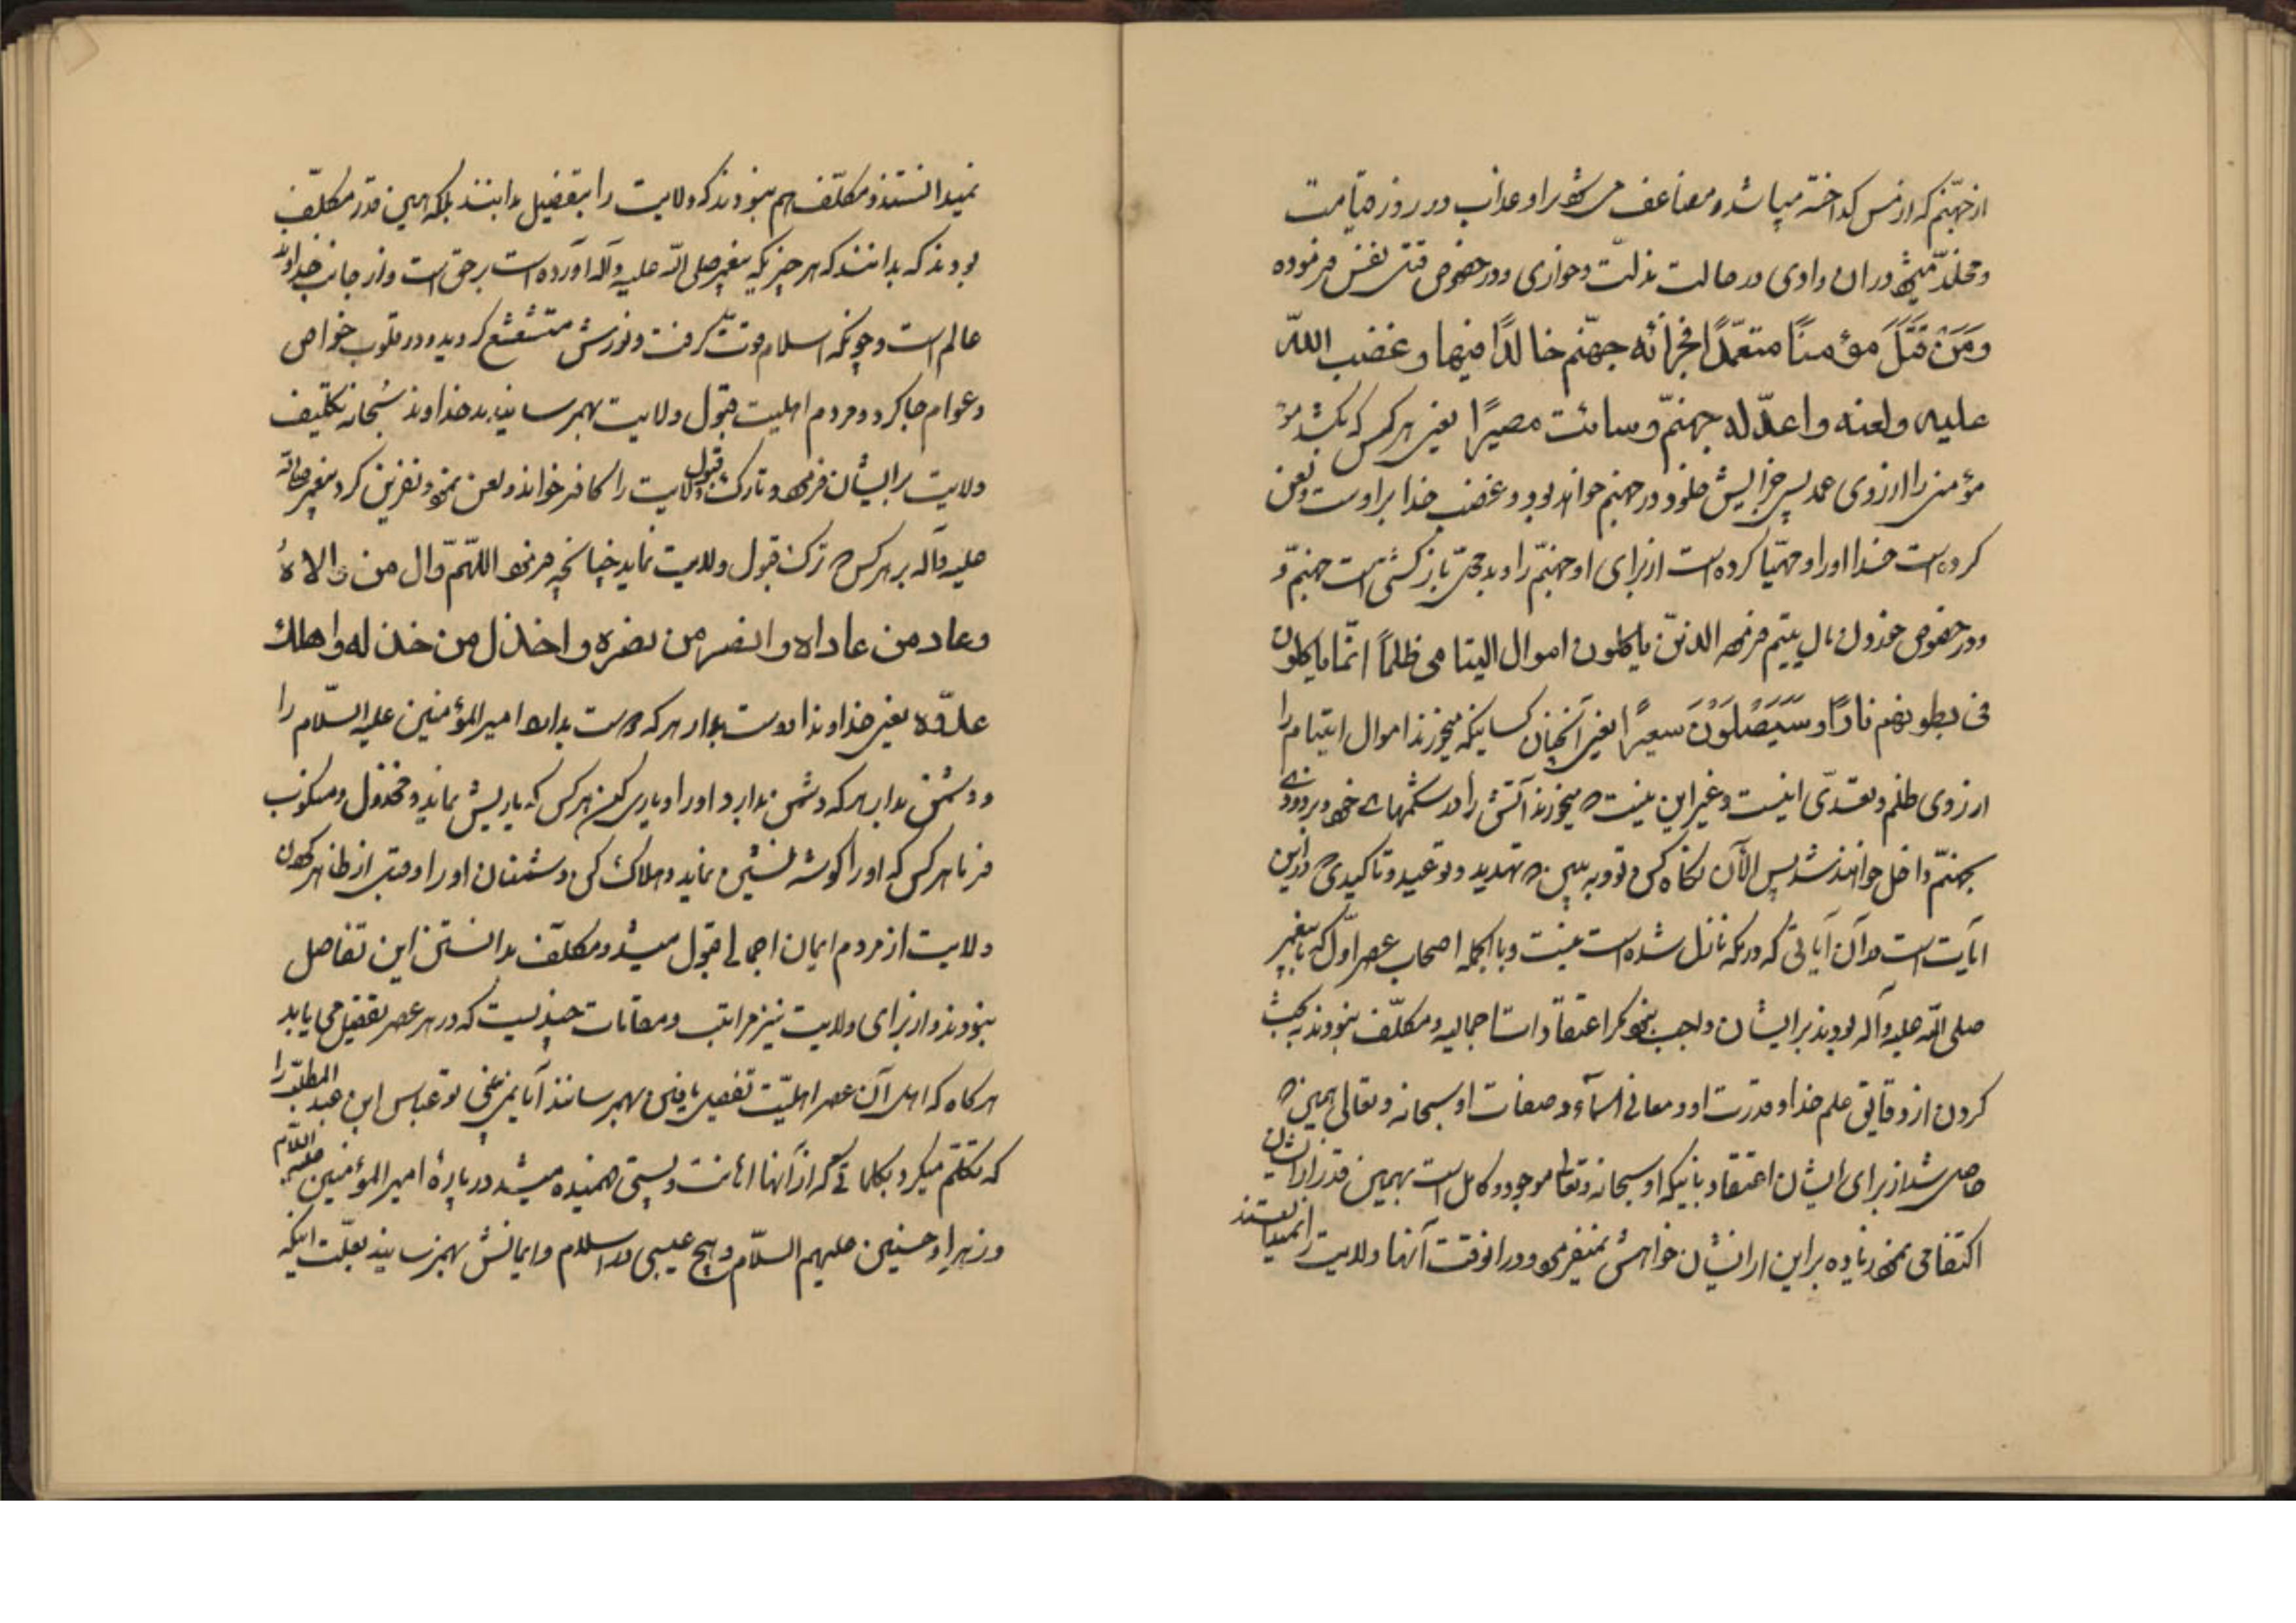 از جهنّم که از مس کداخته میباشد و مضاعف میشود بر او عذاب در روز قیامت
و مخلّد میشود در ان وادی در حالت مذلّت و خواری و در خصوص قتل نفس فرموده
وَمَنْ قَتَلَ مؤمنًا متعمّدًا فجزائه جهنّم خالدًا فیها و غضب اللّه
علیه و لعنه و اعدّ له جهنّم و سائت مصیرًا یعنی هر کس که بکشد
مؤمنی را از روی عمد پس جزایش خلود در جهنم خواهد بود و غضب خدا بر اوست و لعن
کرده است خدا او را و مهیّا کرده است از برای او جهنّم را و بد محل بازکشتی است جهنّم و
و در خصوص خوردن مال یتیم فرموده الذین یاکلون اموال الیتامی ظلماً انّما یاکلون
فی بطونهم نارًا و سَیَصْلَوْنَ سعیرًا یعنی آنچنان کسانیکه میخورند اموال ایتام را
از روی ظلم و تعدّی اینست و غیر این نیست که میخورند آتش را در شکمهای خود و بزودی
بجهنّم داخل خواهند شد پس الآن نکاه کن و توبه ببین که تهدید و توعید و تاکیدی که در این
آیات است در آن آیاتی که در مکه نازل شده است نیست و بالجمله اصحاب عصر اوّل که با پیغمبر
صلی اللّه علیه و آله بودند بر ایشان واجب نبود مکر اعتقادات اجمالیه و مکلّف نبودند به بحث
کردن از دقایق علم خدا و قدرت او و معانی اسمآء و صفات او سبحانه و تعالی همین که
حاصل شد از برای ایشان اعتقاد باینکه او سبحانه و تعالی موجود و کامل است بهمین قدر از ایشان
اکتفا می نمود زیاده بر این از ایشان خواهش نمیفرمود و در انوقت آنها ولایت را نمیدانستند
نمیدانستند و مکلّف هم نبودند که ولایت را بتفصیل بدانند بلکه همین قدر مکلّف
بودند که بدانند که هر چیزیکه پیغمبر صلی اللّه علیه و آله آورده است بر حق است و از جانب خداوند
عالم است و چونکه اسلام قوّت کرفت و نورش متشعشع کردید و در قلوب خواص
و عوام جا کرد و مردم اهلیت قبول ولایت بهمرسانیدند خداوند سُبحانه تکلیف
ولایت بر ایشان فرمود و تارک قبول ولایت را کافر خواند و لعن نمود و نفرین کرد پیغمبر صلی اللّه
علیه و آله بر هر کس که ترک قبول ولایت نماید چنانچه فرمود اللّهمّ وال من والاهُ
و عاد من عاداه و انصر من نصره و اخذل من خذله و اهلک
عدوّه یعنی خداوندا دوست بدار هر که دوست بدارد امیرالمؤمنین علیه السّلام را
و دشمن بدار هر که دشمن بدارد او را و یاری کن هر کس که یاریش نماید و مخذول و منکوب
فرما هر کس که او را کوشه نشین نماید و هلاک کن دشمنان او را و قبل از ظاهر کردن
ولایت از مردم ایمان اجمالی قبول میشد و مکلّف بدانستن این تفاصل
نبودند و از برای ولایت نیز مراتب و مقامات چندیست که در هر عصر تفضیل می یابد
هرکاه که اهل آن عصر اهلیّت تفصیل یافتن بهمرسانند آیا نمی بینی تو عباس ابن عبد المطلّب را
که تکلّم میکرد بکلماتی که از آنها اهانت و پستی فهمیده میشد در بارهٔ امیرالمؤمنین علیه السّلام
و زهرا و حسنین علیهم السّلام و هیچ عیبی در اسلام و ایمانش بهم نرسانید بعلّت اینکه